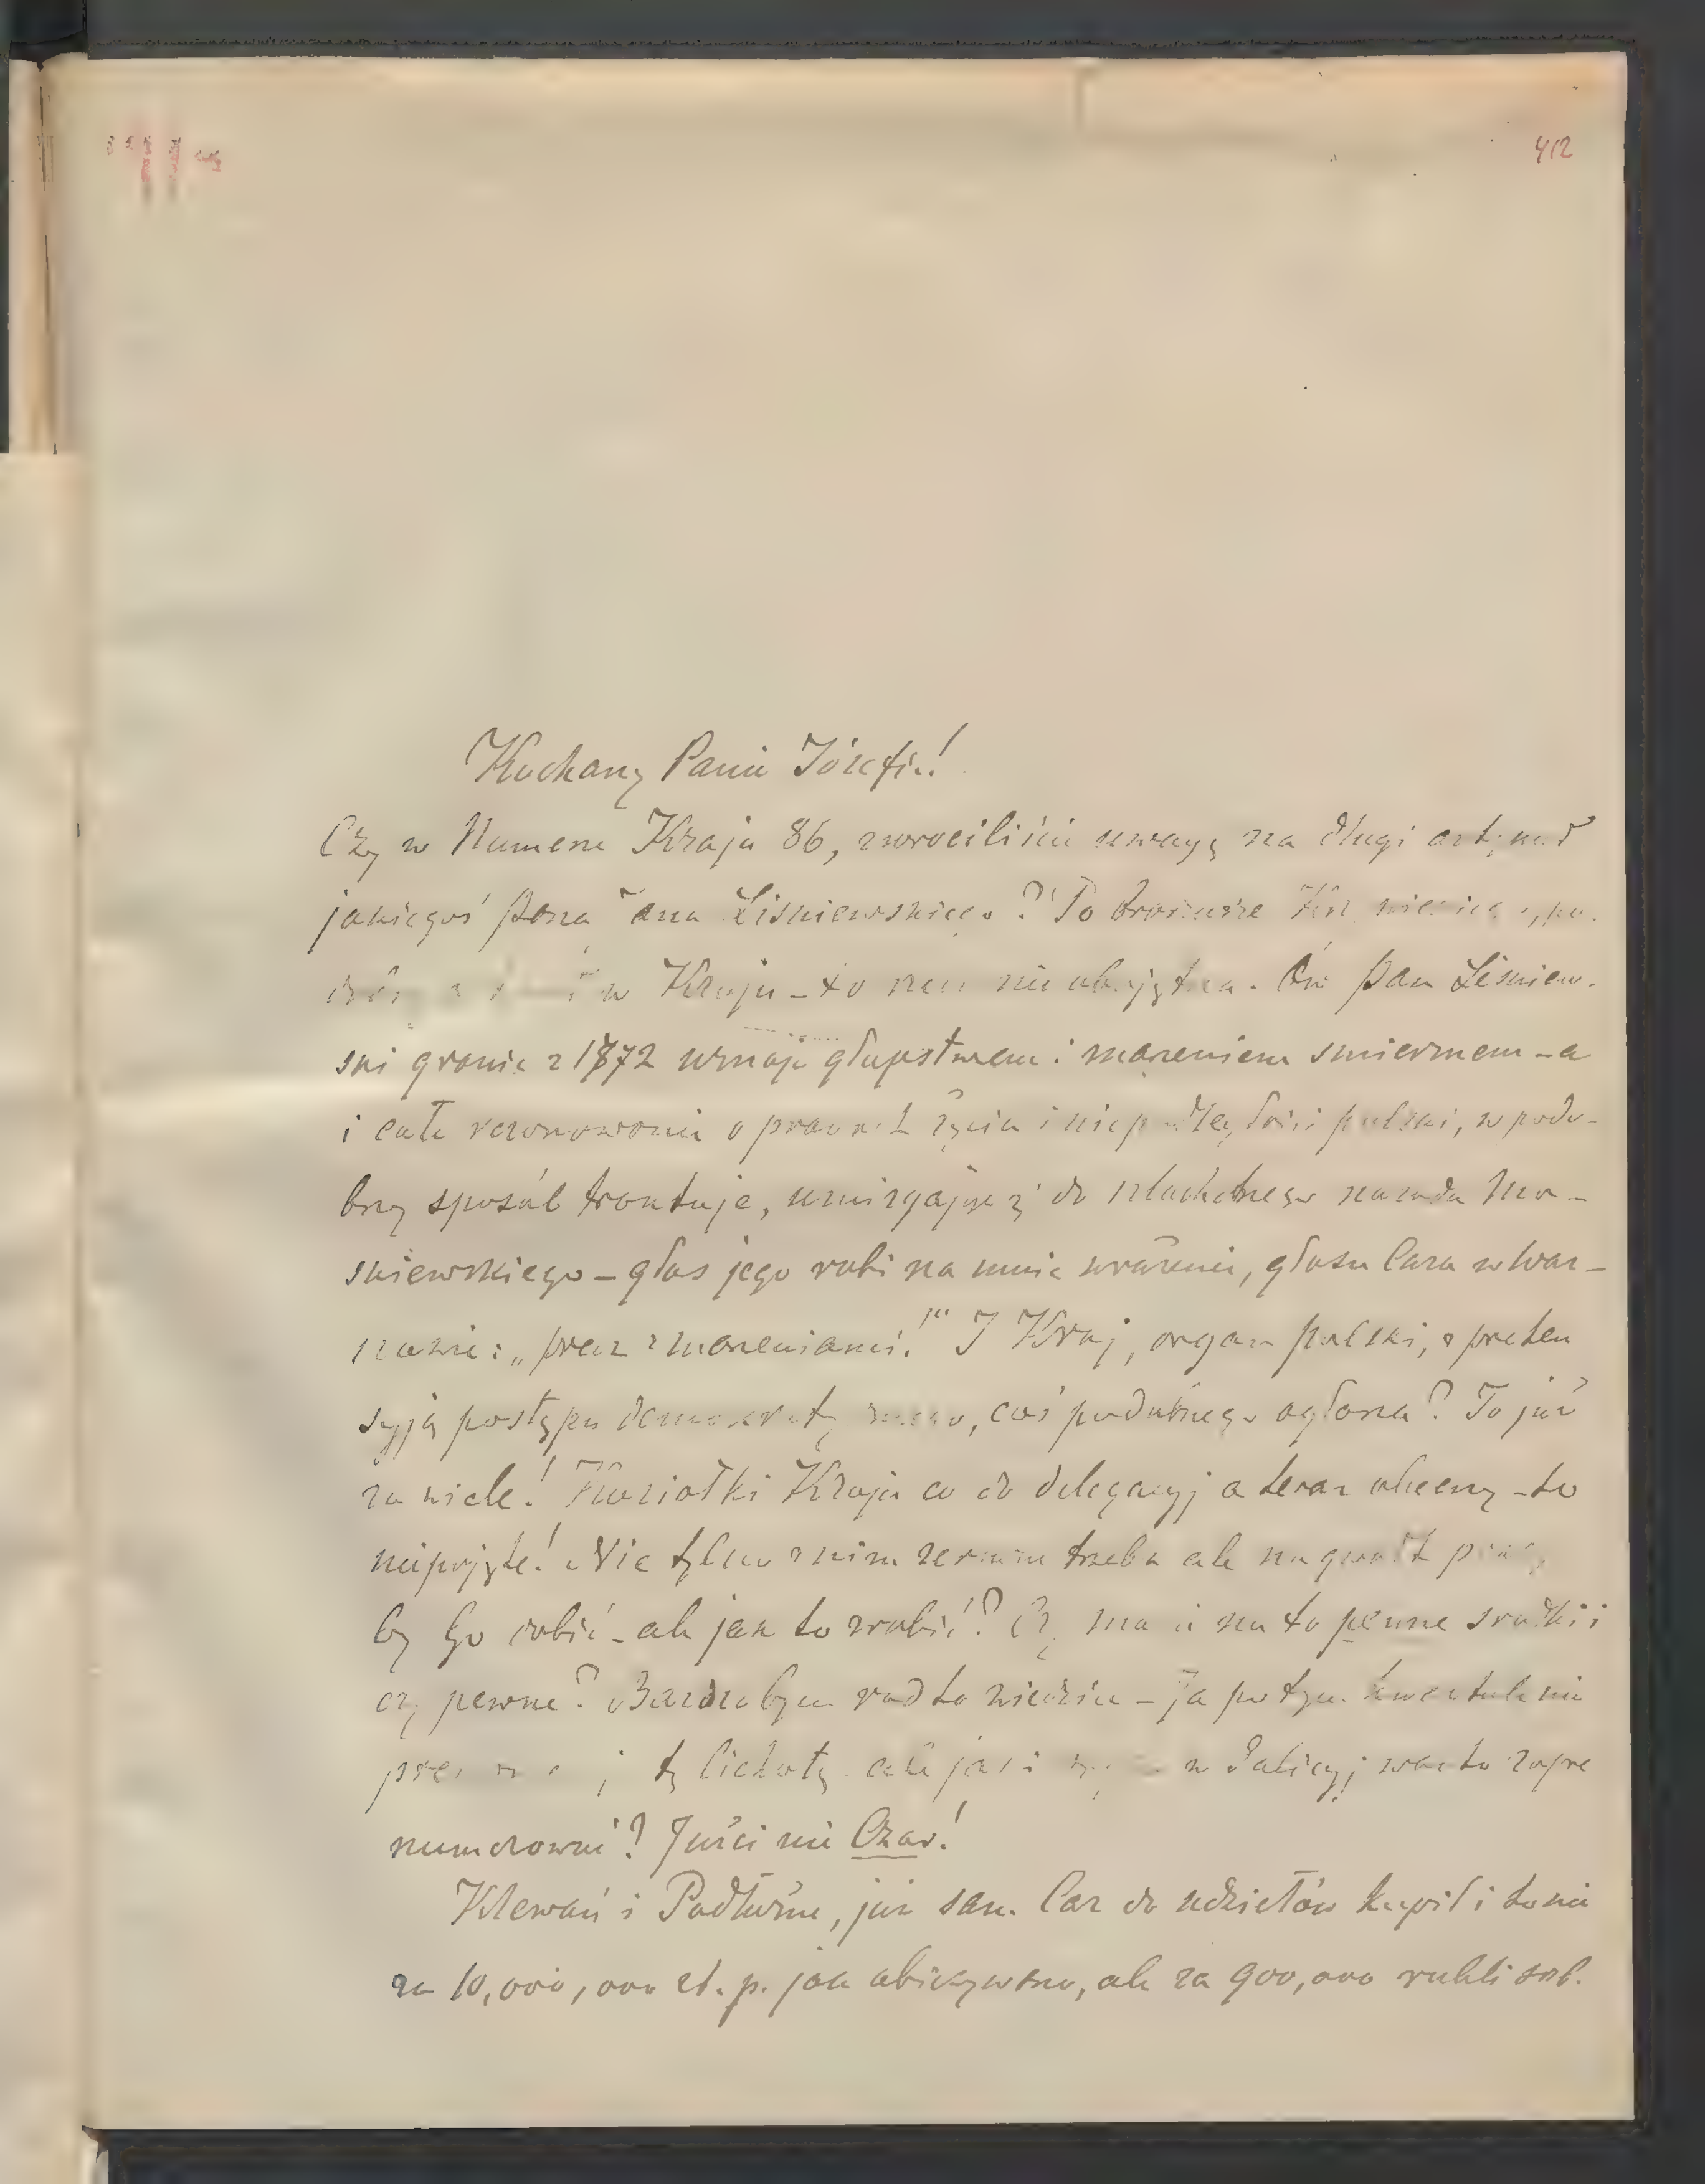 412
Kochany Panie Józefie!
Czy w Numerze Kraju 86, zwróciliście uwagę na długi artykuł
jakiegoś Pana Jana Liśniewskiego? Po broszurze
w Kraju – to nie Ów Pan Leśniew-
ski granic z 1772 głupstwem i marzeniem – a
i całe rezonowanie o prawach życia i niepodległości polski, w podo-
bny sposób traktuje, umizgając się do szlachetnego narodu Mo-
skiewskiego – głos jego robi na mnie wrażenie, głosu Cara w War-
szawie: „precz z marzeniami!" I Kraj, organ polski, z preten
syją postępu demokratycznego, coś podobnego ogłasza? To już
za wiele! Koziołki Kraju co do delegacyj a teraz obecny – to
niepojęte! Nie tylko z nim zerwać trzeba ale na gwałt
by Go dobić – ale jak to zrobić? Czy macie na to pewne środki i
czy pewne? Bardzobym rad to wiedzieć – Ja po tym kwartale nie
tę lichotę ale jaki w Galicyj warto zapre
numerować? Juści nie Czas!
Klewań i Podłużne, już sam Car do udziałów kupił i to nie
za 10,000,000 zł. p. jak obiecywano, ale za 900,000 rubli srb.